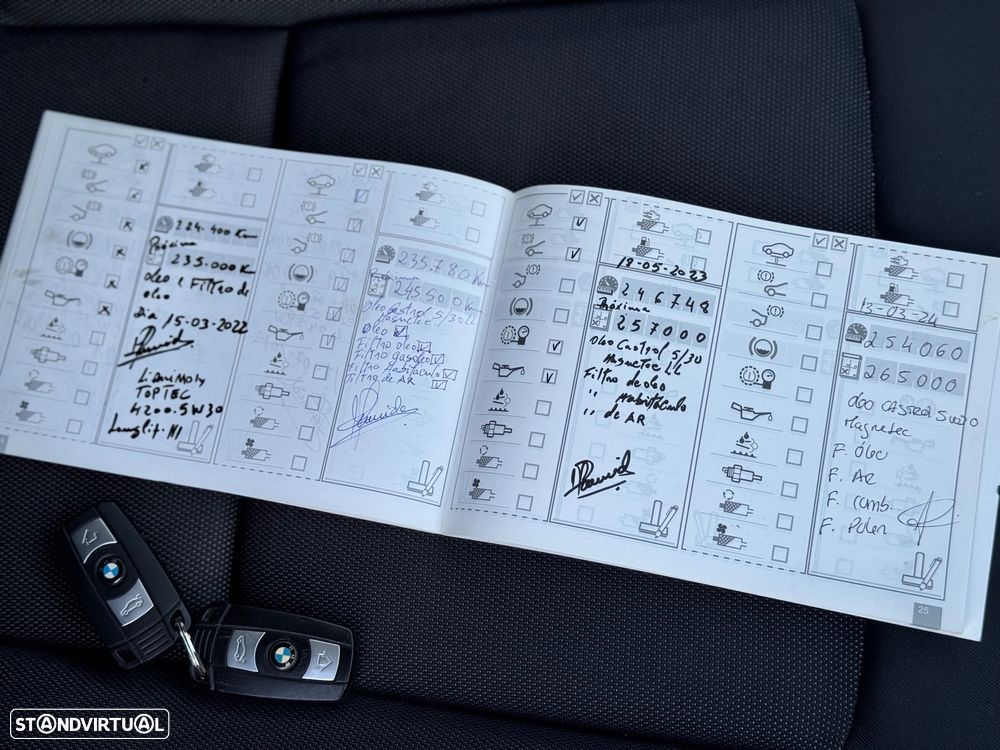 224.400 Km
Próxima
235.000 Km
óleo e Filtro de
óleo
dia 15-03-2022
Liquimoly
TOPTEC
4200.5W30
Longlife III
235.780 Km
Próxima
245.500 Km
Oleo Castrol 5/30 LL
Magnetec
Oleo
Filtro óleo
Filtro Gasoleo
Filtro Habitáculo
Filtro de AR
18-05-2023
246748
Próxima
257000
Oleo Castrol 5/30
Magnetec
Filtro de óleo
" Habitáculo
" de AR
13-03-24
254060
265.000
Magnetec
F. Óleo
F. AR
F. comb.
F. Polen
25
STANDVIRTUAL